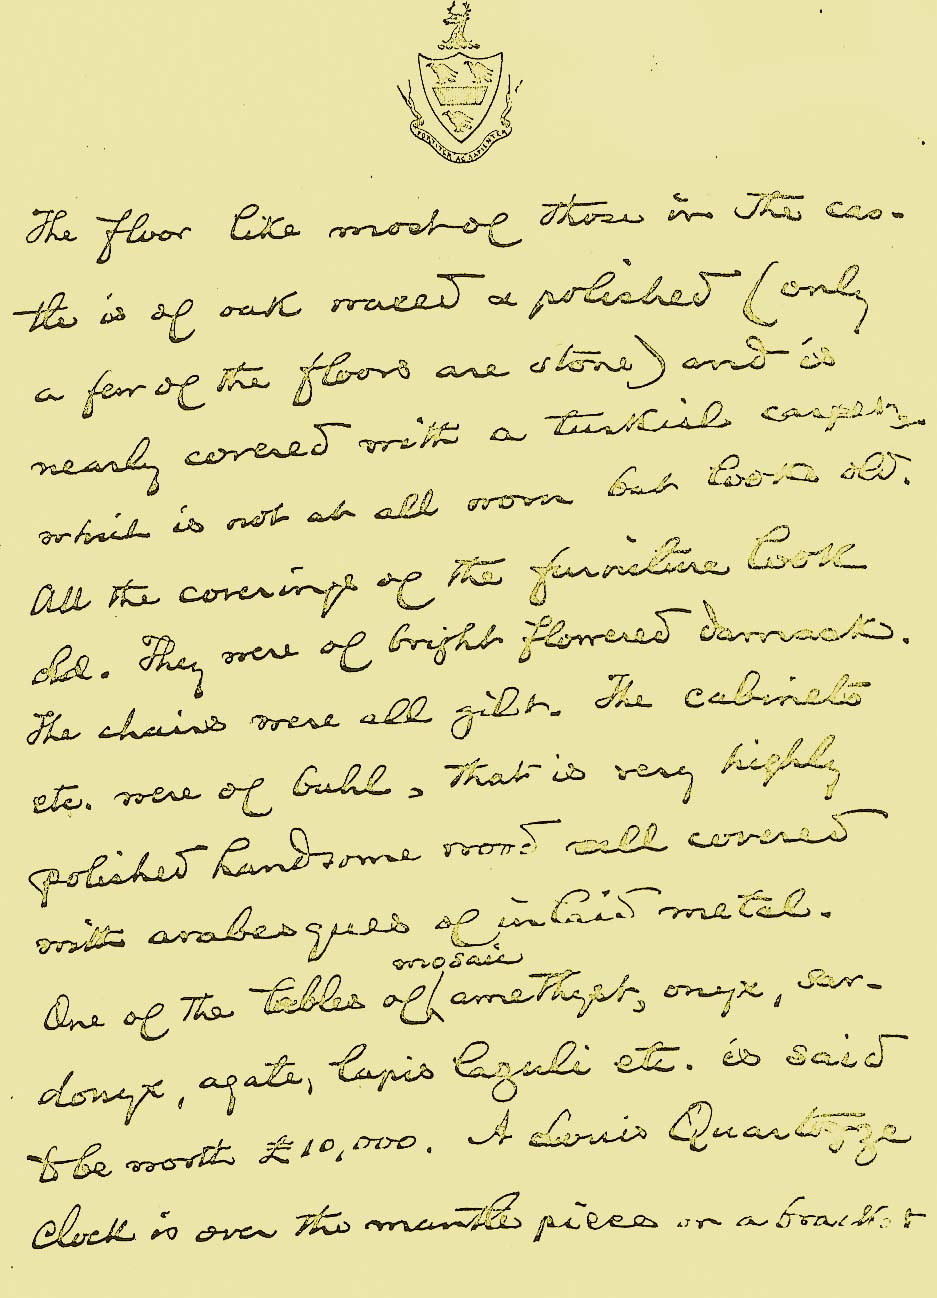 FORTITER AC SAPIENTER
The floor like most of those in the cas-
tle is of oak waxed & polished (only
a few of the floors are stone) and is
nearly covered with a turkish carpet,
which is not at all worn but looks old.
All the coverings of the furniture look
old. They were of bright flowered damask.
The chairs were all gilt. The cabinets
etc. were of buhl, that is very highly
polished handsome wood all covered
with arabesques of inlaid metal.
mosaic
One of the tables of amethyst, onyx, sar-
donyx, agate, lapis lazuli etc. is said
to be worth £10,000. A Louis Quartozze
clock is over the mantle piece on a bracket